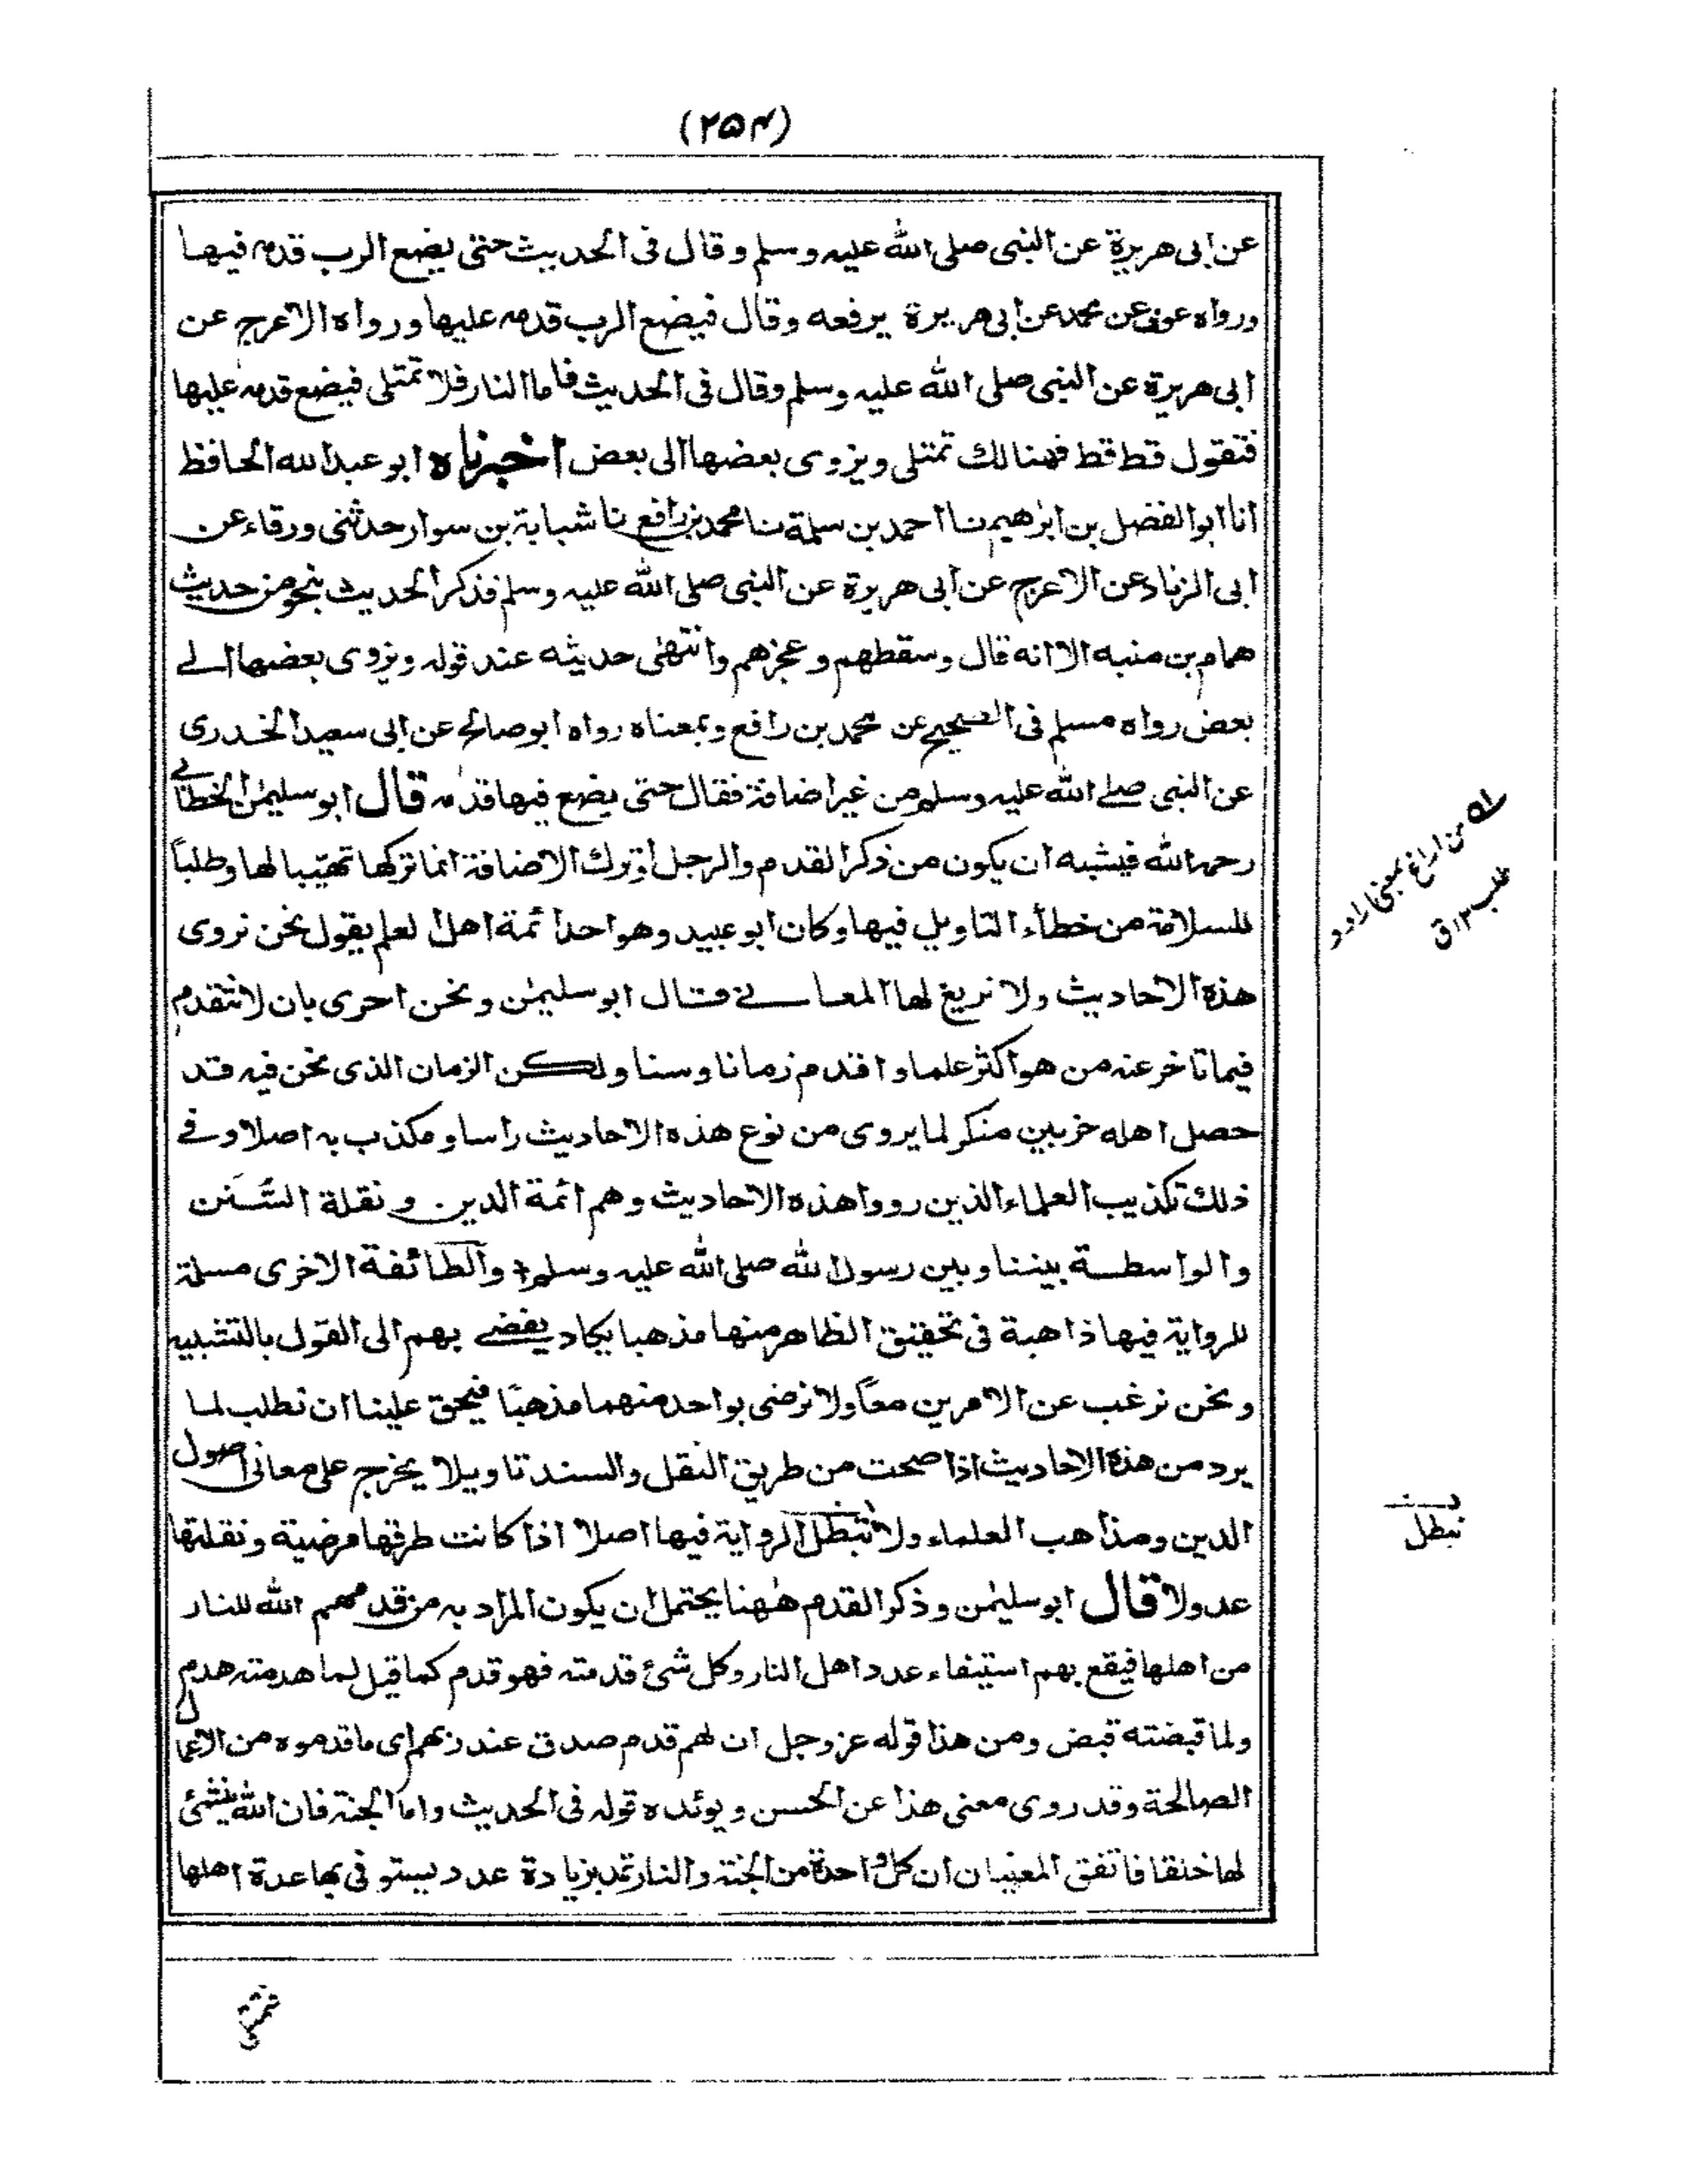 (۲۵۴)
عن ابى هريرة عن النبى صلى الله عليه وسلم وقال فى الحديث حتى يضع الرب قدمه فيها
ورواه عوف عن محمد عن ابى هريرة يرفعه وقال فيضع الرب قدمه عليها ورواه الاعرج عن
ابى هريرة عن النبى صلى الله عليه وسلم وقال فى الحديث فاما النار فلا تمتلى فيضع قدمه عليها
فتقول قط قط فهنالك تمتلى ويزوى بعضها الى بعض اخبرناه ابو عبد الله الحافظ
انا ابو الفضل بن ابرهيم نا احمد بن سلمة نا محمد بن رافع نا شبابة بن سوار حدثنى ورقاء عن
ابى الزناد عن الاعرج عن ابى هريرة عن النبى صلى الله عليه وسلم فذكر الحديث بنحو من حديث
همام بن منبه الا انه قال وسقطهم وعجزهم وانتهى حديثه عند قوله ويزوى بعضها الے
بعض رواه مسلم فى الصحيح عن محمد بن رافع وبمعناه رواه ابو صالح عن ابى سعيد الخدرى
عن النبى صلے الله عليه وسلم من غير اضافة فقال حتى يضع فيها قدمه قال ابو سليمٰن الخطابے
رحمه الله فيشبه ان يكون من ذكر القدم والرجل او ترك الاضافة انما تركها تهيّبا لها وطلباً
للسلامة من خطأء التاويل فيها وكان ابو عبيد وهو احد ائمة اهل العلم يقول نحن نروى
هذه الاحاديث ولا نريغ لها المعانے قال ابو سليمٰن ونحن احرى بان لا نتقدم
فيما تاخر عنه من هو اكثر علما واقدم زمانا وسنا ولكن الزمان الذى نحن فيه قد
حصل اهله حزبين منكر لما يروى من نوع هذه الاحاديث راسا ومكذب به اصلا وفے
ذلك تكذيب العلماء الذين رووا هذه الاحاديث وهم ائمة الدين ونقلة السُّنَن
والواسطة بيننا وبين رسول الله صلى الله عليه وسلم والطائفة الاخرى مسلمة
للرواية فيها ذاهبة فى تحقيق الظاهر منها مذهبا يكاد يفضے بهم الى القول بالتشبيه
ونحن نرغب عن الامرين معاً ولا نرضى بواحد منهما مذهبًا فيحق علينا ان نطلب لما
يرد من هذه الاحاديث اذا صحت من طريق النقل والسند تاويلا يخرج على معانى اصول
الدين ومذاهب العلماء ولا نبطل الرواية فيها اصلا اذا كانت طرقها مرضية ونقلتها
عدولا قال ابو سليمٰن وذكر القدم هٰهنا يحتمل ان يكون المراد به من قدمهم الله للنار
من اهلها فيقع بهم استيفاء عدد اهل النار وكل شئ قدمته فهو قدم كما قيل لما هدمته هدم
ولما قبضته قبض ومن هذا قوله عز وجل ان لهم قدم صدق عند ربهم اى ما قدموه من الاعمال
الصالحة وقد روى معنى هذا عن الحسن ويوئده قوله فى الحديث واما الجنة فان الله ينشئ
لها خلقا فاتفق المعنيان ان كل واحدة من الجنة والنار تمد بزيادة عدد يستوفى بها عدة اهلها
له من اراغ بمعنى اراد و
طلب ۱۲ ق
نبطل